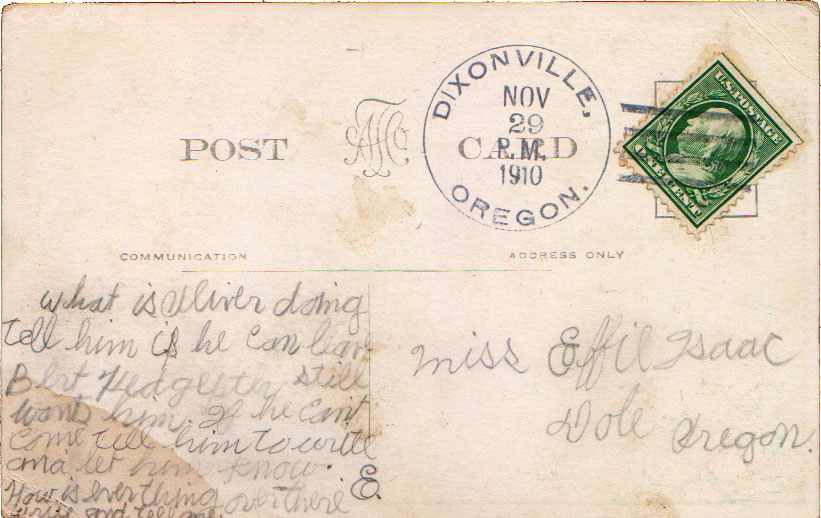 DIXONVILLE,
NOV
29
P.M.
1910
OREGON.
U.S. POSTAGE
ONE CENT
POST CARD
COMMUNICATION
ADDRESS ONLY
what is Oliver doing
tell him if he can leave
Bert still
wants him If he can't
come tell him to write
and let him know.
How is everthing over there
and tell me. E.
Miss Effie Isaac
Dole Oregon.